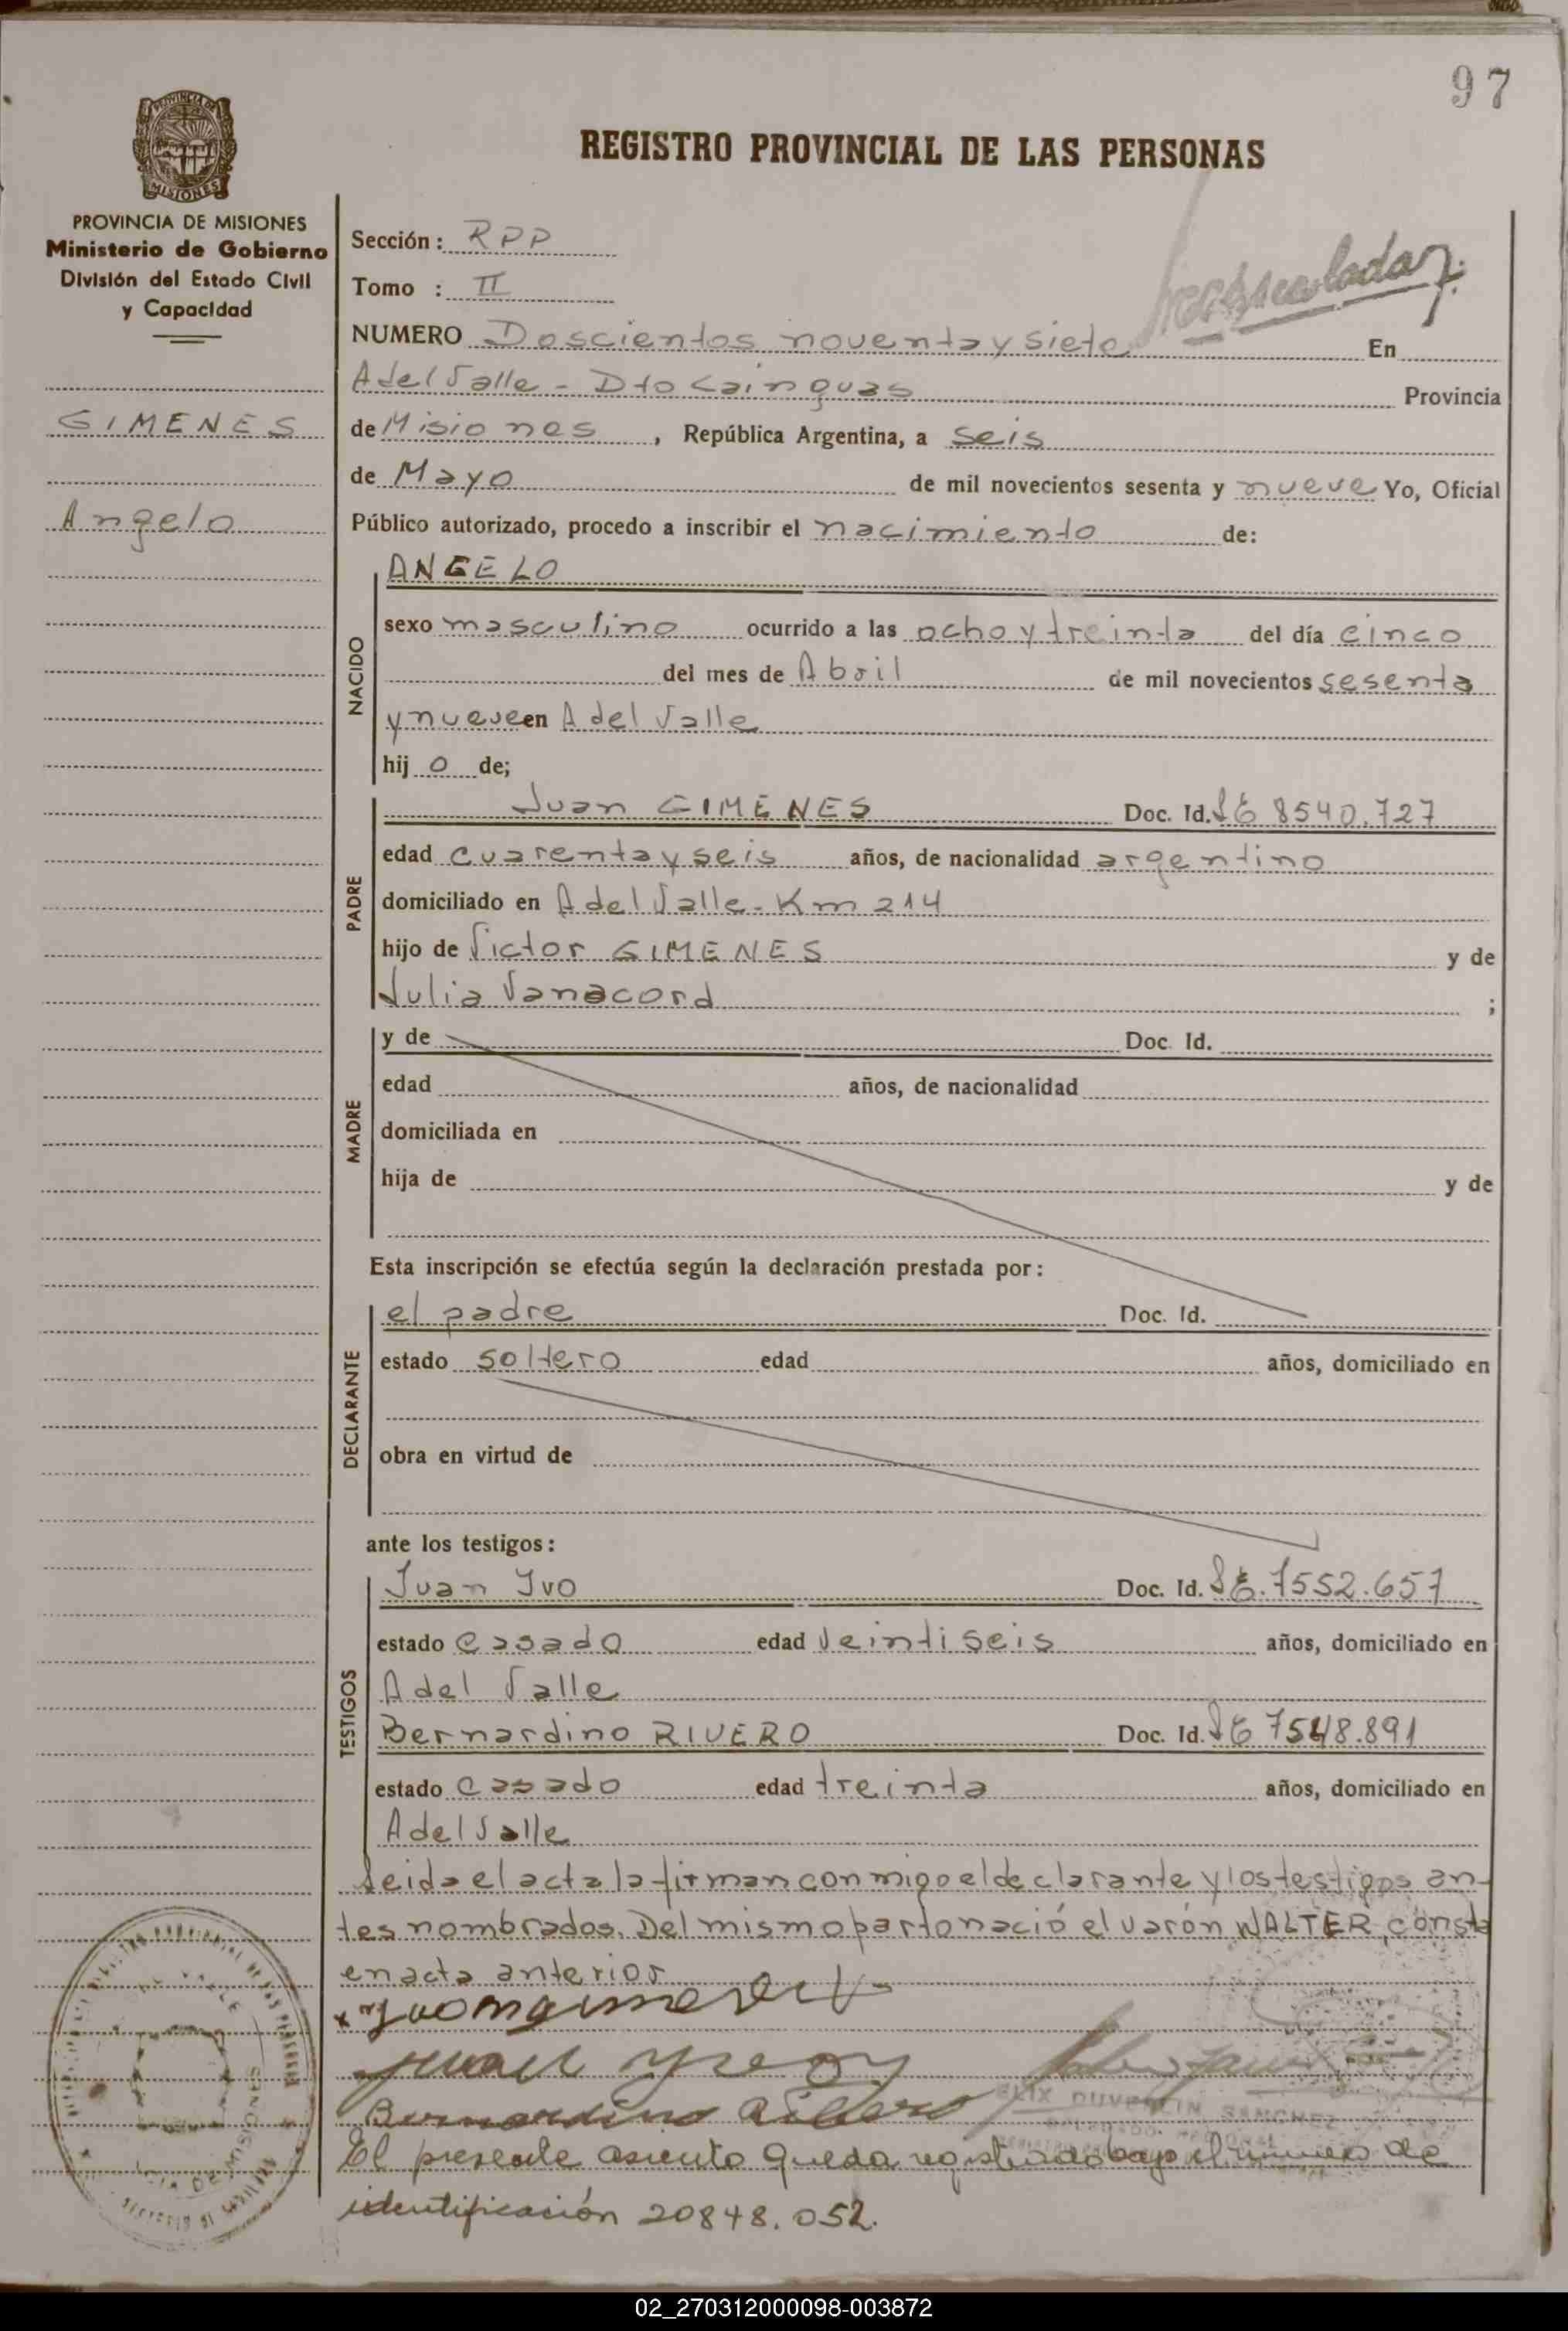 97
REGISTRO PROVINCIAL DE LAS PERSONAS
PROVINCIA DE
MISIONES
PROVINCIA DE MISIONES
Ministerio de Gobierno
División del Estado Civil
y Capacidad
GIMENES
Angelo
Sección: RPP
Tomo : II
NUMERO Doscientos noventa y siete En
A del Valle - Dto Cainguas Provincia
de Misiones, República Argentina, a seis
de Mayo de mil novecientos sesenta y nueve Yo, Oficial
Público autorizado, procedo a inscribir el nacimiento de:
NACIDO
ANGELO
sexo masculino ocurrido a las ocho y treinta del día cinco
del mes de Abril de mil novecientos sesenta
y nueve en A del Valle
hij o de;
PADRE
Juan GIMENES Doc. Id. LE 8540.727
edad cuarenta y seis años, de nacionalidad argentino
domiciliado en A del Valle - Km 214
hijo de Victor GIMENES y de
Julia Vanacord ;
MADRE
y de Doc. Id.
edad años, de nacionalidad
domiciliada en
hija de y de
Esta inscripción se efectúa según la declaración prestada por:
DECLARANTE
el padre Doc. Id.
estado soltero edad años, domiciliado en
obra en virtud de
ante los testigos:
TESTIGOS
Juan Ivo Doc. Id. LE. 7552.657
estado casado edad veintiseis años, domiciliado en
A del Valle
Bernardino RIVERO Doc. Id. LE 7548.891
estado casado edad treinta años, domiciliado en
A del Valle
Leida el acta la firman conmigo el declarante y los testigos an-
tes nombrados. Del mismo parto nació el varón WALTER, consta
en acta anterior
Bernardino Rivero
SANCHEZ
El presente asiento queda registrado bajo el número de
identificación 20848.052.
02_270312000098-003872